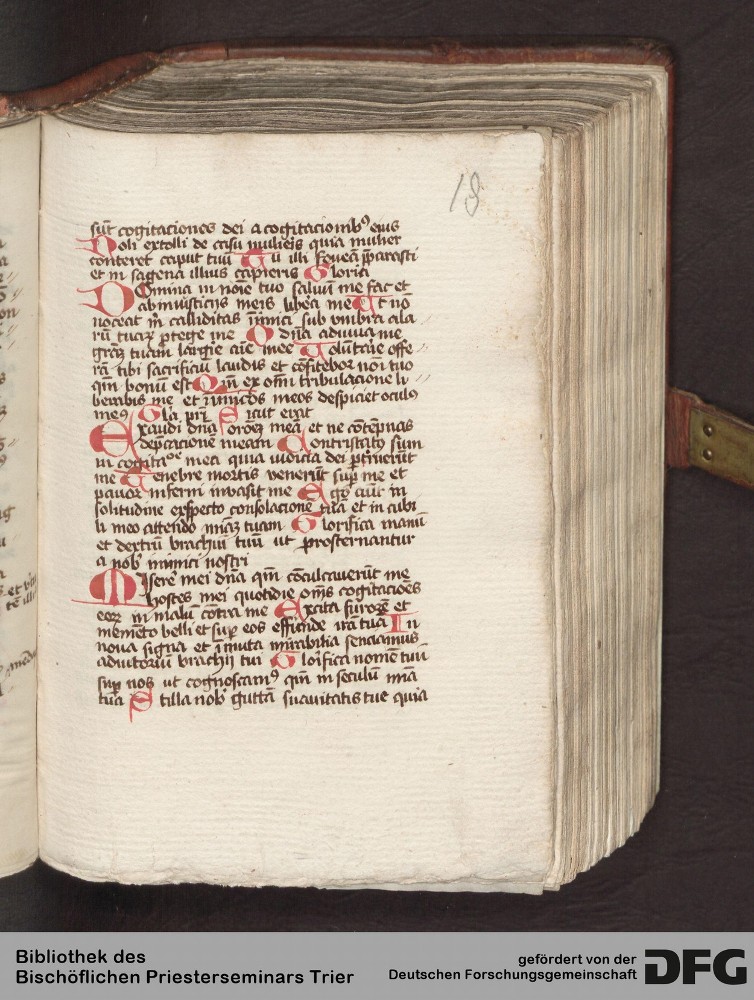 18
sūt cogitaciones dei a cogitacionibꝰ eius
Noli extolli de casu mulieris quia mulier
conteret caput tuū Tu illi foveā p̄parasti
et in sagena illius capieris Gloria
Domina in noīe tuo saluū me fac et
ab iniusticijs meis libera me Et nō
noceat m̄ calliditas inimici sub vmbra ala
rū tuaꝝ ꝓtege me O dn̄a adiuua me
grāꝫ tuam largire aīe mee Volūtarie offe
rā tibi sacrificiū laudis et cōfitebor noī tuo
qm̄ bonū est Qm̄ ex om̄i tribulacione li
berabis me et inimicos meos despiciet oculus
meꝰ Gła pr̄i Sicut erat
Exaudi dn̄a oroēꝫ meā et ne cōtēpnas
dep̄cacionē meam Contristatꝰ sum
in cogitaoē mea quia iudicia dei ꝑtruerūt
me Tenebre mortis venerūt suꝑ me et
pauor inferni inuasit me Ego aūt in
solitudine exspecto consolacionē tuā et in cubi
li meo attendo mīaꝫ tuam Glorifica manū
et dextrū brachiū tuū ut prosternantur
a nob̄ inimici nostri
Miserē mei dn̄a qm̄ cōculcauerūt me
hostes mei quotidie om̄s cogitacioēs
eoꝝ in malū cōtra me Excita furorē et
memēto belli et suꝑ eos effunde irā tuā In
noua signa et īmuta mirabilia senciamus
adiutoriū brachij tui Glorifica nomē tuū
suꝑ nos ut cognoscamꝰ qm̄ in seculū mīa
tua Stilla nob̄ guttā suauitatis tue quia
Bibliothek des
Bischöflichen Priesterseminars Trier
gefördert von der
Deutschen Forschungsgemeinschaft
DFG